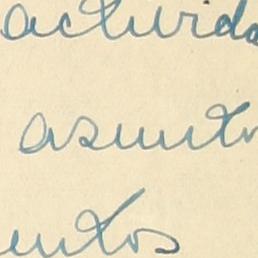 activida
asunto
entos